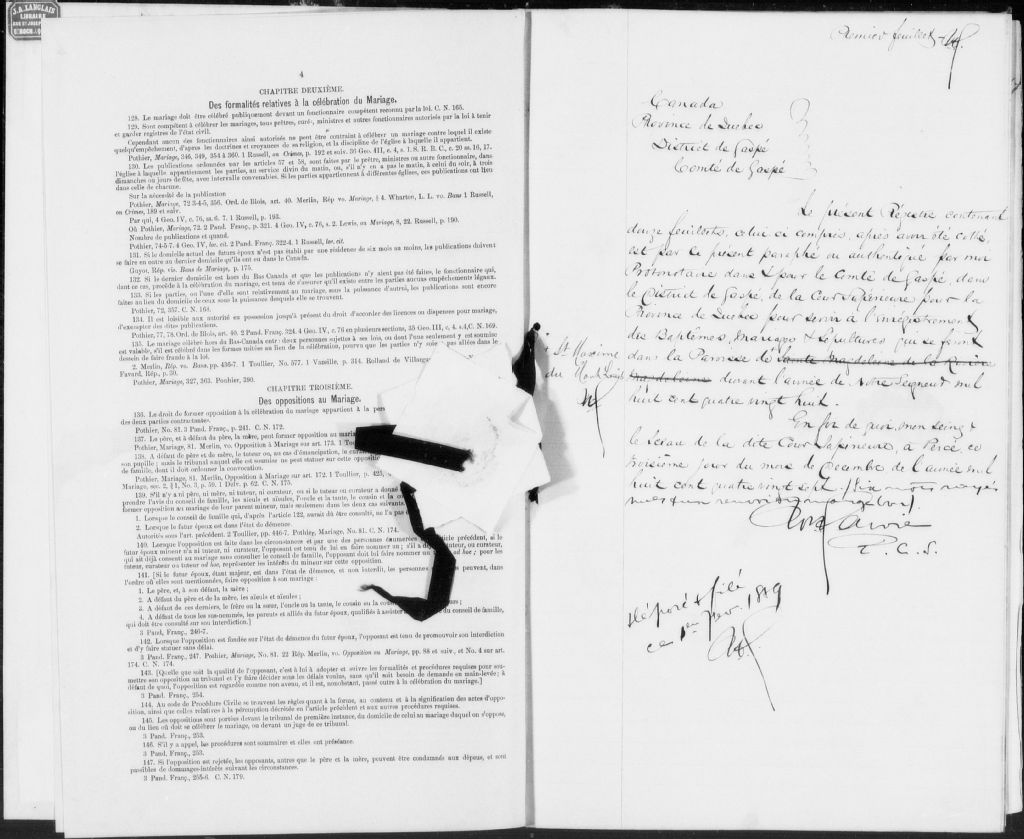 J. A. LANGLAIS
LIBRAIRE
RUE ST-JOSEPH
ST ROCH
4
CHAPITRE DEUXIÈME.
Des formalités relatives à la célébration du Mariage.
128. Le mariage doit être célébré publiquement devant un fonctionnaire compétent reconnu par la loi. C. N. 165.
129. Sont compétents à célébrer les mariages, tous prêtres, curés, ministres et autres fonctionnaires autorisés par la loi à tenir
et garder registres de l'état civil.
Cependant aucun des fonctionnaires ainsi autorisés ne peut être contraint à célébrer un mariage contre lequel il existe
quelqu'empêchement, d'après les doctrines et croyances de sa religion, et la discipline de l'église à laquelle il appartient.
Pothier, Mariage, 346, 349, 354 & 360. 1 Russell, on Crimes, p. 192 et suiv. 36 Geo. III, c. 4, s. 1. S. R. B. C., c. 20 ss. 16, 17.
130. Les publications ordonnées par les articles 57 et 58, sont faites par le prêtre, ministre ou autre fonctionnaire, dans
l'église à laquelle appartiennent les parties, au service divin du matin, ou, s'il n'y en a pas le matin, à celui du soir, à trois
dimanches ou jours de fête, avec intervalle convenables. Si les parties appartiennent à différentes églises, ces publications ont lieu
dans celle de chacune.
Sur la nécessité de la publication
Pothier, Mariage, 72-3-4-5, 356. Ord. de Blois, art. 40. Merlin, Rép vo. Mariage, § 4. Wharton, L. L. vo. Bans 1 Russell,
on Crimes, 189 et suiv.
Par qui, 4 Geo. IV, c. 76, ss. 6. 7. 1 Russell, p. 193.
Où Pothier, Mariage, 72. 2 Pand. Franç., p. 321. 4 Geo. IV, c. 76, s. 2. Lewis, on Mariage, 8, 22. Russell, p. 190.
Nombre de publications et quand.
Pothier, 74-5-7. 4 Geo. IV, loc. cit. 2 Pand. Franç. 322-4. 1 Russell, loc. cit.
131. Si le domicile actuel des futurs époux n'est pas établi par une résidence de six mois au moins, les publications doivent
se faire en outre au dernier domicile qu'ils ont eu dans le Canada.
Guyot, Rép. vis. Bans de Mariage, p. 175.
132. Si le dernier domicile est hors du Bas Canada et que les publications n'y aient pas été faites, le fonctionnaire qui,
dant ce cas, procède à la célébration du mariage, est tenu de s'assurer qu'il existe entre les parties aucuns empêchements légaux.
133. Si les parties, ou l'une d'elle sont relativement au mariage, sous la puissance d'autrui, les publications sont encore
faites au lieu du domicile de ceux sous la puissance desquels elle se trouvent.
Pothier, 72, 357. C. N. 168.
134. Il est loisible aux autorité en possession jusqu'à présent du droit d'accorder des licences ou dispenses pour mariage,
d'exempter des dites publications.
Pothier, 77, 78. Ord. de Blois, art. 40. 2 Pand. Franç. 324. 4 Geo. IV, c. 76 en plusieurs sections, 35 Geo. III, c. 4. s.4, C. N. 169.
135. Le mariage célébré hors du Bas-Canada entr: deux personnes sujettes à ses lois, ou dont l'une seulement y est soumise
est valable, s'il est célébré dans les formes usitées au lieu de la célébration, pourvu que les parties n'y soie pas allées dans le
dessein de faire fraude à la loi.
2. Merlin, Rép. vo. Bans, pp. 435-7. 1 Toullier, No. 577. 1 Vazeille, p. 314. Rolland de Villargu
Favard, Rép., p. 30.
Pothier, Mariage, 327, 363. Pochier, 390.
CHAPITRE TROISIÈME.
Des oppositions au Mariage.
136. Le droit de former opposition à la célébration du mariage appartient à la pers
des deux parties contractantes.
Pothier, No. 81. 3 Pand. Franç., p. 241. C. N. 172.
137. Le père, et à défaut du père, la mère, peut former opposition au maria
Pothier, Mariage, 81. Merlin, vo. Opposition à Mariage sur art. 173. 1 To
138. A défaut de père et de mère, le tuteur ou, au cas d'émancipation, le curat
son pupille; mais le tribunal auquel elle est soumise ne peut statuer sur cette oppositio
famille, dont il doit ordonner la convocation.
Pothier, Mariage, 81. Merlin, Opposition à Mariage sur art. 172. 1 Toullier, p. 425,
Mariage, sec. 2, § 1, No. 3, p. 59. 1 Dalv. p. 62. C. N. 175.
139. S'il n'y a ni père, ni mère, ni tuteur, ni curateur, ou si le tuteur ou curateur a donné
prendre l'avis du conseil de famille, les aïeuls et aïeules, l'oncle et la tante, le cousin et la co
former opposition au mariage de leur parent mineur, mais seulement dans les deux cas suivants
1. Lorsque le conseil de famille qui, d'après l'article 122, aurait dû être consulté, ne l'a pas
2. Lorsque le futur époux est dans l'état de démence.
Autorités sous l'art. précédent. 2 Toullier, pp. 446-7. Pothier, Mariage, No. 81. C. N. 174.
140. Lorsque l'opposition est faite dans les circonstances et par une des personnes énumérées icle précédent, si le
futur époux mineur n'a ni tuteur, ni curateur, l'opposant est tenu de lui en faire nommer un; s'il a déj tuteur, ou curateur,
qui ait déjà consenti au mariage sans consulter le conseil de famille, l'opposant doit lui faire nommer un ad hoc; pour les
tuteur, curateur ou tuteur ad hoc, représenter les intérêts du mineur sur cette opposition.
141. [Si le futur époux, étant majeur, est dans l'état de démence, et non interdit, les personnes peuvent, dans
l'ordre où elles sont mentionnées, faire opposition à son mariage:
1. Le père, et, à son défaut, la mère;
2. A défaut du père et de la mère, les aïeuls et aïeules;
3. A défaut de ces derniers, le frère ou la sœur, l'oncle ou la tante, le cousin ou la cou s;
4. A défaut de tous les sus-nommés, les parents et alliés du futur époux, qualifiés à assister du conseil de famille,
qui doit être consulté sur son interdiction.]
3 Pand. Franç., 246-7.
142. Lorsque l'opposition est fondée sur l'état de démence du futur époux, l'opposant est tenu de promouvoir son interdiction
et d'y faire statuer sans délai.
3 Pand. Franç., 247. Pothier, Mariage, No. 81. 22 Rép. Merlin, vo. Opposition au Mariage, pp. 88 et suiv., et No. 4 sur art.
174. C. N. 174.
143. [Quelle que soit la qualité de l'opposant, c'est à lui à adopter et suivre les formalités et procédures requises pour sou-
mettre son opposition au tribunal et l'y faire décider sous les délais voulus, sans qu'il soit besoin de demande en main-levée; à
défaut de quoi, l'opposition est regardée comme non avenu, et il est, nonobstant, passé outre à la célébration du mariage.]
3 Pand. Franç., 254.
144. Au code de Procédure Civile se trouvent les règles quant à la forme, au contenu et à la signification des actes d'oppo-
sition, ainsi que celles relatives à la péremption décrétée en l'article précédent et aux autres procédures requises.
145. Les oppositions sont portées devant le tribunal de première instance, du domicile de celui au mariage duquel on s'oppose,
ou du lieu où doit se célébrer le mariage, ou devant un juge de ce tribunal.
3 Pand. Franç., 253.
146. S'il y a appel, les procédures sont sommaires et elles ont préséance.
3 Pand. Franç., 253.
147. Si l'opposition est rejetée, les opposants, autres que le père et la mère, peuvent être condamnés aux dépens, et sont
passibles de dommages-intérêts suivant les circonstances.
3 Pand. Franç., 255-6. C. N. 179.
Premier feuillet
Canada
Province de Quebec
District de Gaspé
Comté de Gaspé
Le présent Régistre contenant
douze feuillets, celui ci compris, après avoir été cotté,
est par le présent paraphé ou authentiqué par moi
Protonotaire dans & pour le Comté de Gaspé, dans
le District de Gaspé, de la Cour Supérieure pour la
Province de Quebec pour servir à l'enregistrement
des Baptêmes, Mariages & Sépultures qui se feront
dans la Paroisse de Sainte Magdeleine de la Rivière
St Maxime
du Mont Louis
Magdeleine durant l'année de Notre Seigneur mil
huit cent quatre vingt huit.
En foi de quoi, mon seing &
le sceau de la dite Cour Supérieure, à Percé, ce
troisième jour du mois de Décembre de l'année mil
huit cent quatre vingt sept. (Six mots rayés
nuls & un renvoi en marge bon).
P. C. S.
Déposé & filé
ce 1er Fevr. 1889